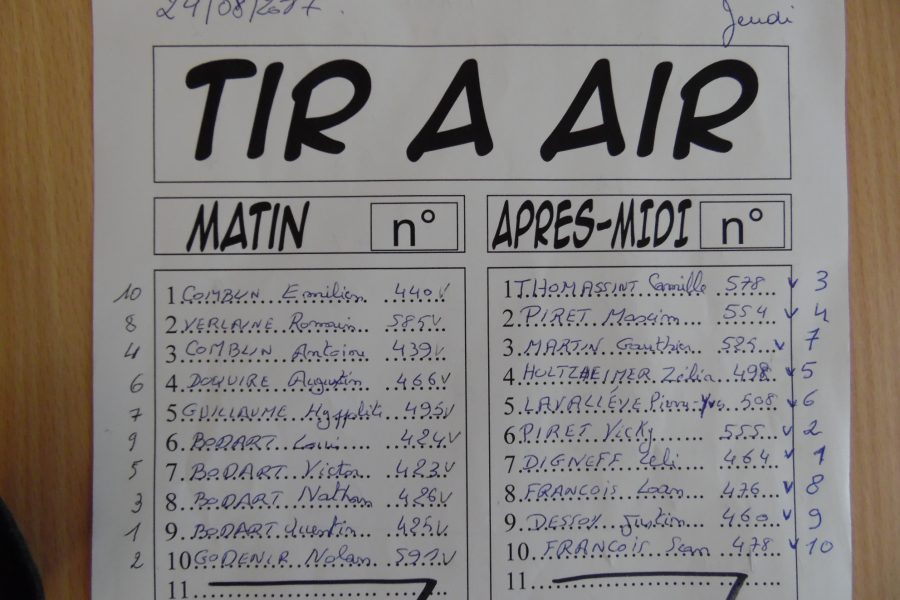 24/08/2017.
Jeudi
TIR A AIR
MATIN n°
10 1 COMBLIN Emilien 440 v
8 2 VERLAINE Romain 585 v
4 3 COMBLIN Antoine 439 v
6 4 DOQUIRE Augustin 466 v
7 5 GUILLAUME Hyppolite 495 v
9 6 BODART Louis 424 v
5 7 BODART Victor 423 v
3 8 BODART Nathan 426 v
1 9 BODART Quentin 425 v
2 10 GODENIR Nolan 591 v
11
APRES-MIDI n°
1 THOMASSINT Camille 578 v 3
2 PIRET Maxim 554 v 4
3 MARTIN Gauthier 525 v 7
4 HULTZHEIMER Zélia 498 v 5
5 LAVALLÉVE Pierre-Yves 508 v 6
6 PIRET Vicky 555 v 2
7 DIGNEFF 464 v 1
8 FRANCOIS Loan 476 v 8
9 DESSOY Justin 460 v 9
10. FRANCOIS Sean 478 v 10
11